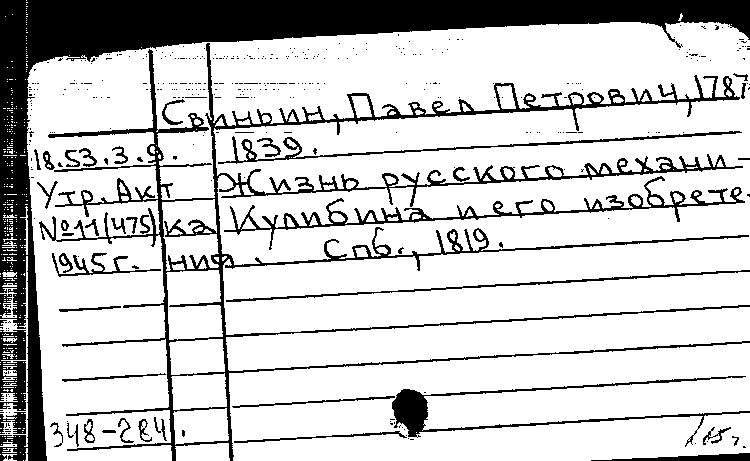 Свиньин, Павел Петрович, 1787
18.53.3.9. 1839.
Утр. Акт Жизнь русского механи-
№11(475) ка Кулибина и его изобрете-
1945г. ния. Спб., 1819.
348-284.